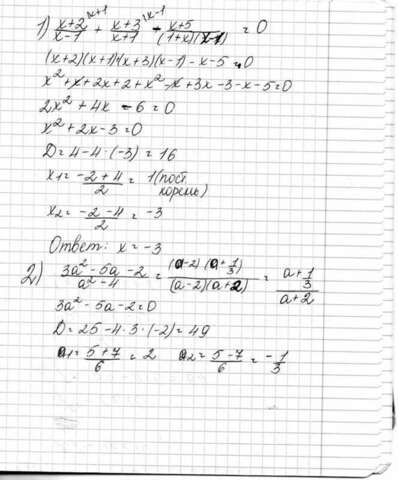 1) (x+2)/(x-1) ^(x+1) + (x+3)/(x+1) ^(x-1) - (x+5)/((1+x)(x-1)) = 0
(x+2)(x+1)+(x+3)(x-1) - x-5 = 0
x² + x + 2x + 2 + x² - x + 3x - 3 - x - 5 = 0
2x² + 4x - 6 = 0
x² + 2x - 3 = 0
D = 4 - 4·(-3) = 16
x₁ = (-2+4)/2 = 1 (пост. корень)
x₂ = (-2-4)/2 = -3
Ответ: x = -3
2) (3a² - 5a - 2)/(a² - 4) = ((a-2)(a+1/3))/((a-2)(a+2)) = (a+1/3)/(a+2)
3a² - 5a - 2 = 0
D = 25 - 4·3·(-2) = 49
a₁ = (5+7)/6 = 2 a₂ = (5-7)/6 = -1/3